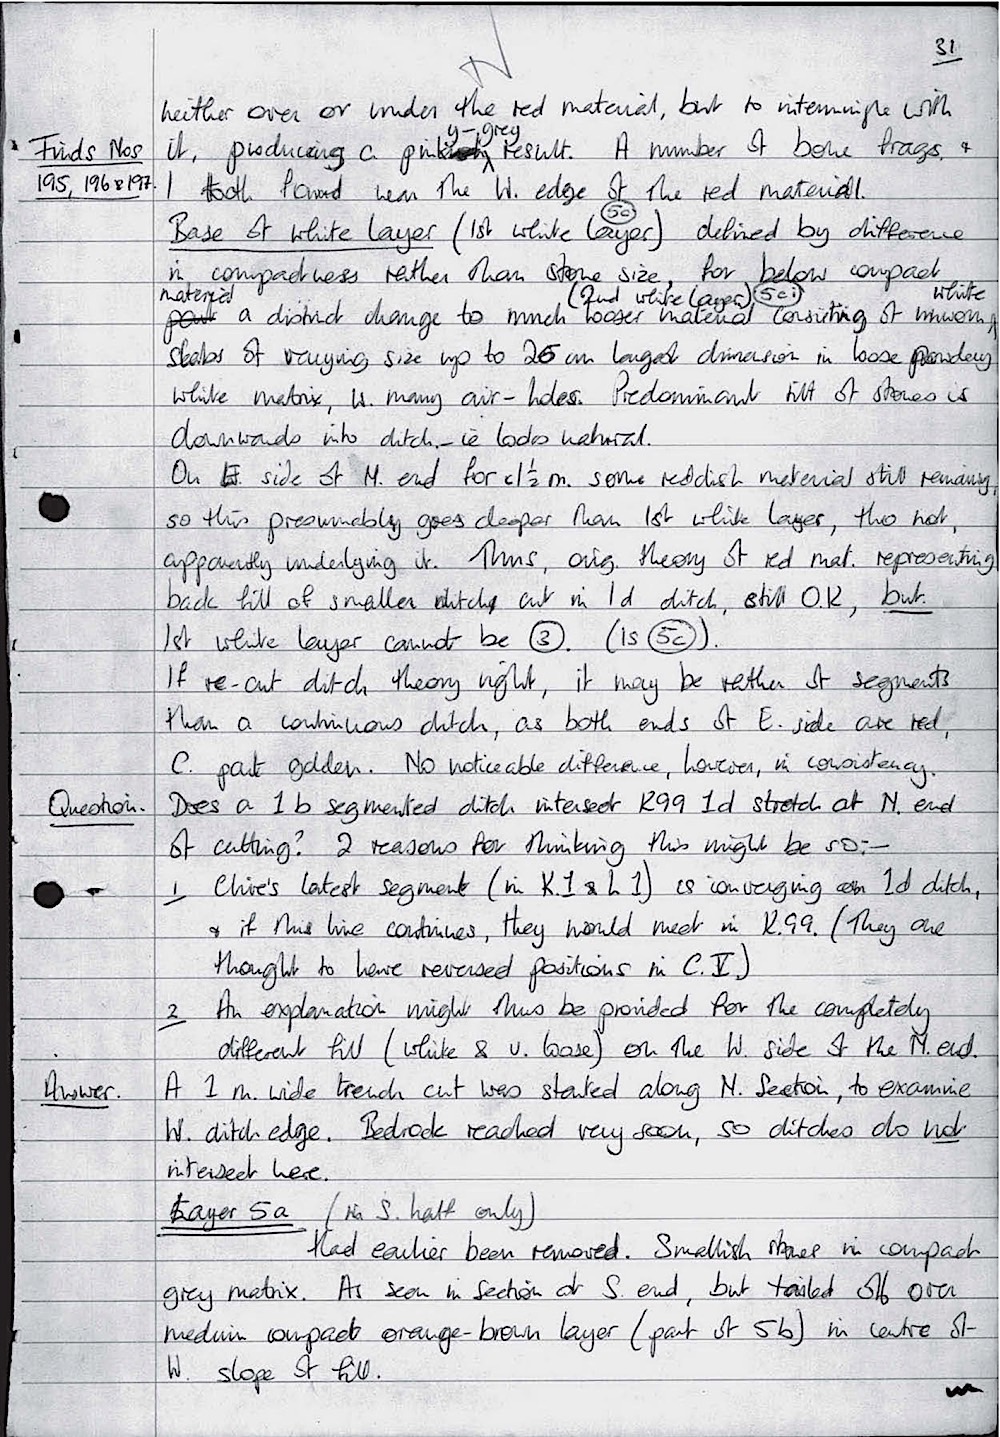 31
neither over or under the red material, but to intermingle with
Finds Nos 195, 196 & 197.
it, producing a pinky-grey result. A number of bone frags. &
1 tooth found near the W. edge of the red material.
Base of white layer (1st white layer) (5c) defined by difference
in compactness rather than stone size, for below compact
material a distinct change to much looser material (2nd white layer) (5ci) consisting of unworn white
slabs of varying size up to 26 cm largest dimension in loose powdery
white matrix, w. many air-holes. Predominant tilt of stones is
downwards into ditch - ie looks natural.
On E. side of N. end for c1½ m. some reddish material still remaining,
so this presumably goes deeper than 1st white layer, tho not,
apparently underlying it. Thus, orig. theory of red mat. representing
back fill of smaller ditch cut in 1d ditch, still O.K, but
1st white layer cannot be (3). (Is (5c)).
If re-cut ditch theory right, it may be rather of segments
than a continuous ditch, as both ends of E. side are red,
C. part golden. No noticeable difference, however, in consistency.
Question.
Does a 1b segmented ditch intersect K99 1d stretch at N. end
of cutting? 2 reasons for thinking this might be so:-
1 Clive's latest segment (in K.1 & L1) is converging on 1d ditch,
& if this line continues, they would meet in K.99. (They are
thought to have reversed positions in C.V.)
2 An explanation might thus be provided for the completely
different fill (white & v. loose) on the W. side of the N. end.
Answer.
A 1 m. wide trench cut was started along N. Section, to examine
W. ditch edge. Bedrock reached very soon, so ditches do not
intersect here.
Layer 5a (in S. half only)
Had earlier been removed. Smallish stones in compact
grey matrix. As seen in section at S. end, but tailed off over
medium compact orange-brown layer (part of 5b) in centre of
W. slope of fill.